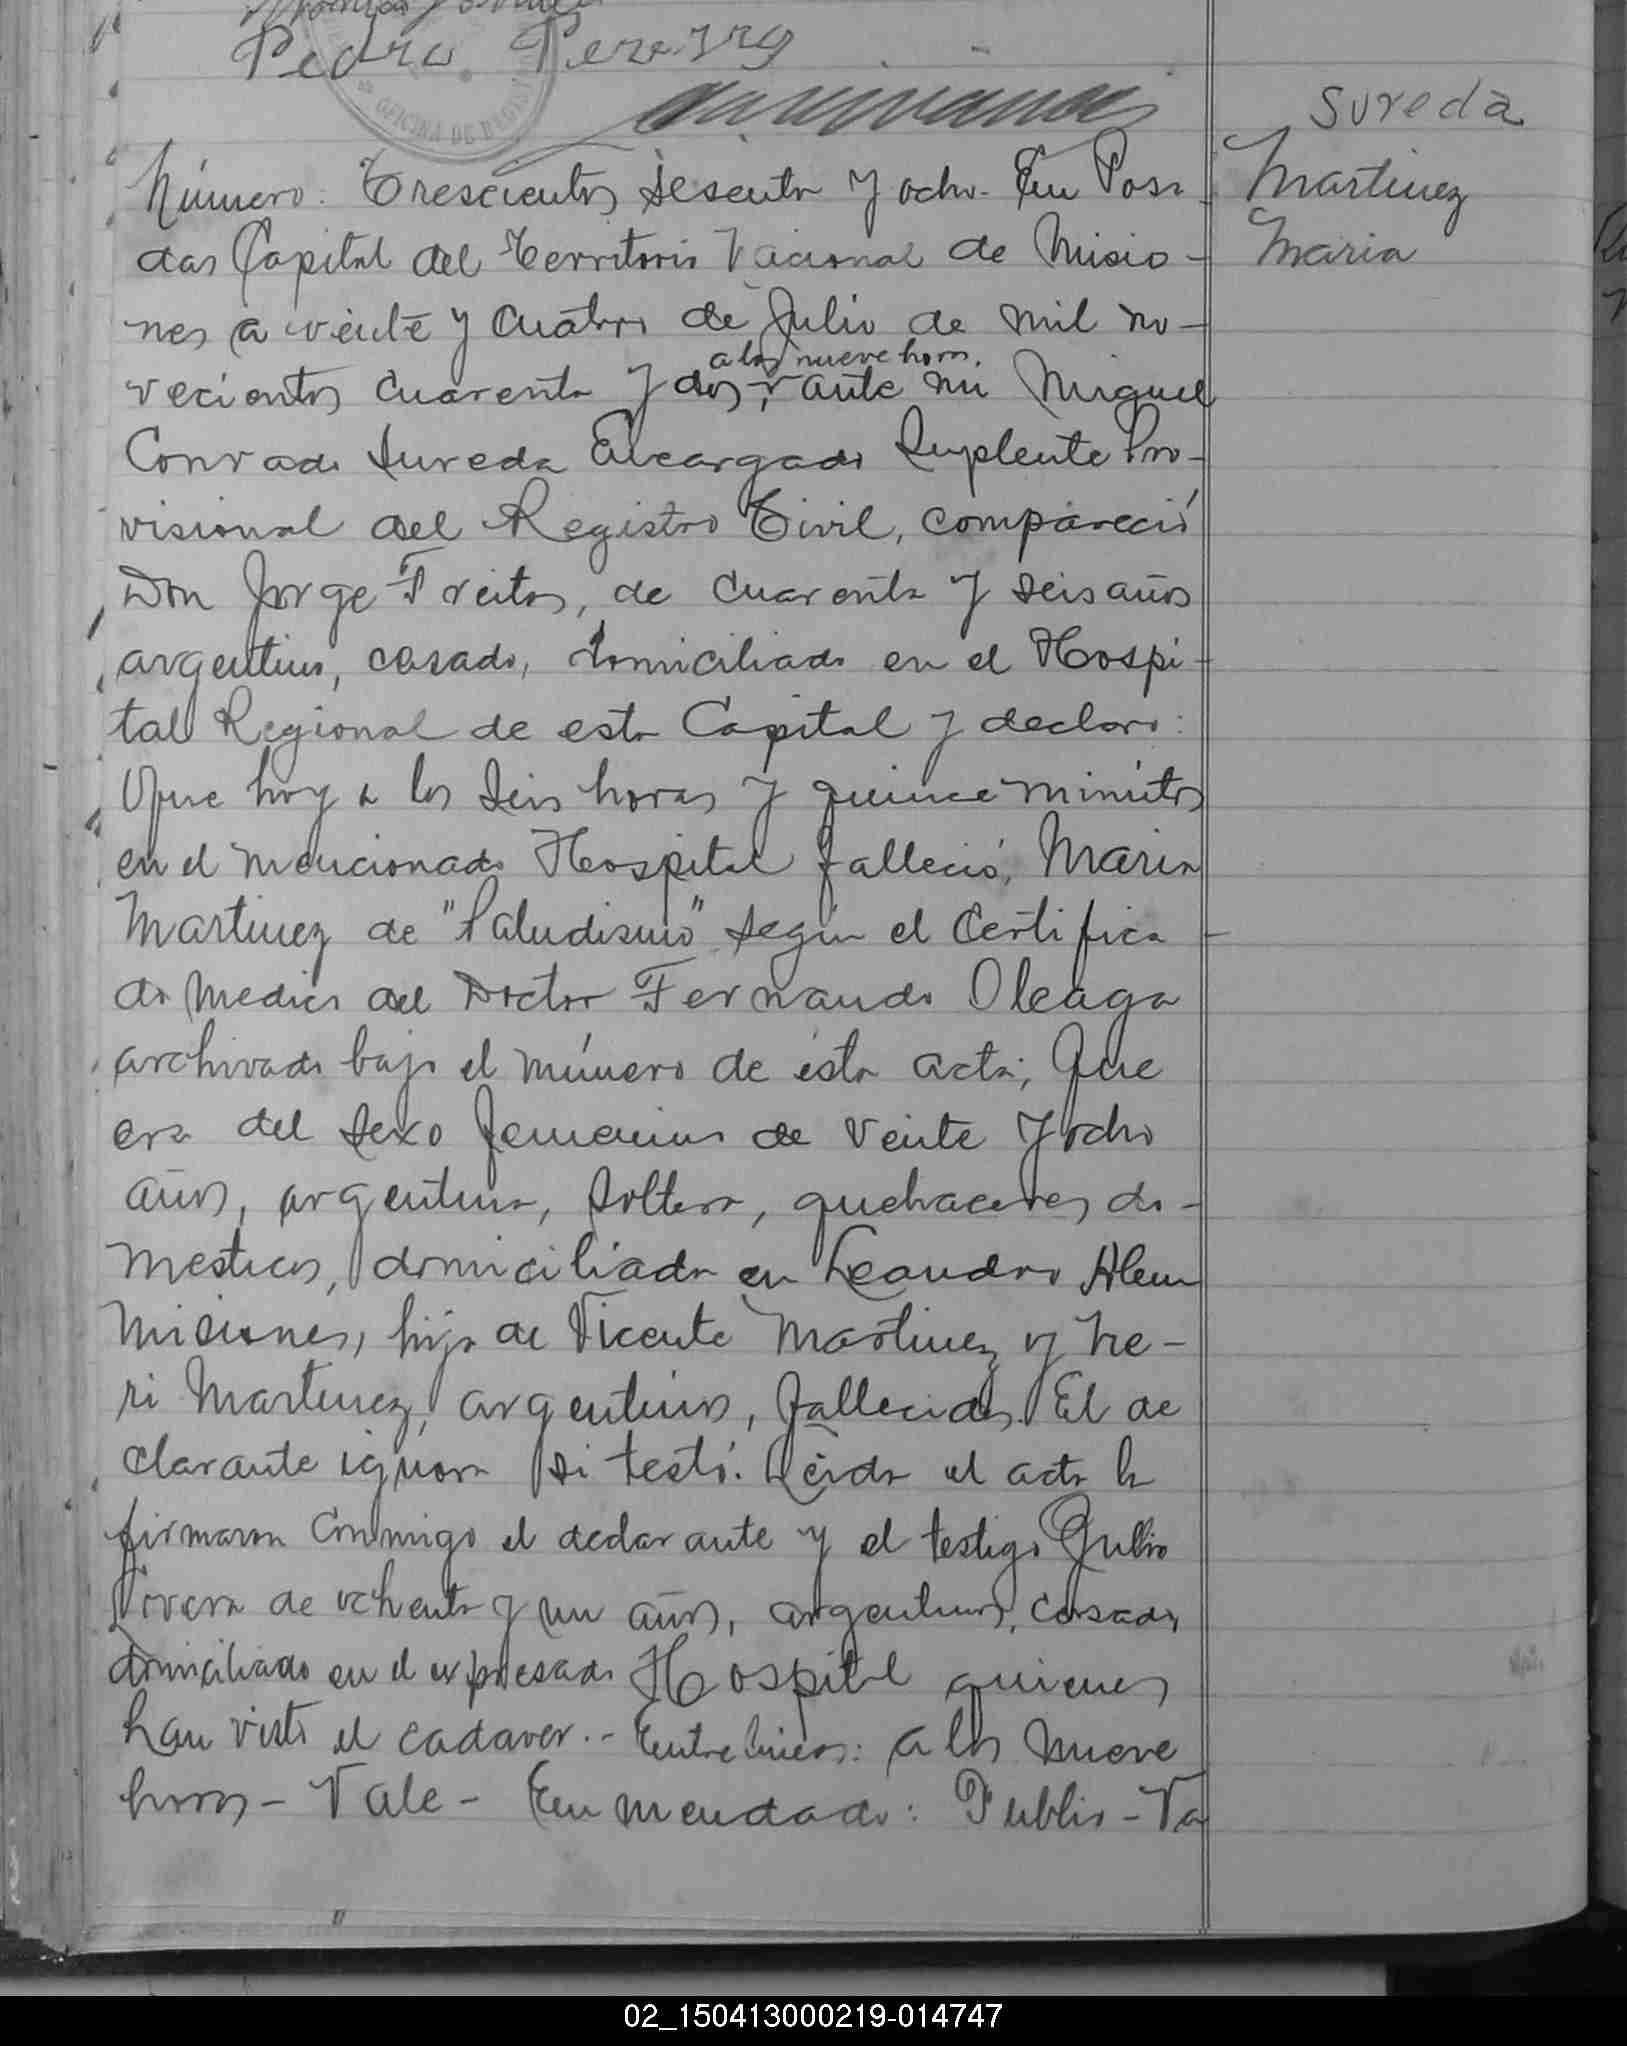 Pedro Pereyra
OFICINA DE REGIS
Sureda
Martinez
Maria
Número: Trescientos sesenta y ocho. En Posa
das Capital del Territorio Nacional de Misio-
nes a veinte y cuatro de Julio de mil no-
a las nueve horas.
vecientos cuarenta y dos, ante mi Miguel
Conrado Sureda Encargado Suplente Pro-
visional del Registro Civil, compareció
Don Jorge Freitas, de cuarenta y seis años
argentino, casado, domiciliado en el Hospi-
tal Regional de esta Capital y declaro:
Que hoy a las seis horas y quince minutos
en el mencionado Hospital falleció, Maria
Martinez de "Paludismo" según el certifica
do medico del Doctor Fernando Oleaga
archivado bajo el número de ésta acta; Que
era del sexo femenino de veinte y ocho
años, argentina, soltera, quehaceres do-
mesticos, domiciliada en Leandro Alem
Misiones, hija de Vicente Martinez y Ne-
ri Martinez, argentinos, fallecidos. El de
clarante ignora si testó. Leida el acta la
firmaron conmigo el declarante y el testigo Publio
Rivera de ochenta y un años, argentino, casado,
domiciliado en el expresado Hospital quienes
han visto el cadaver.- Entre lineas: a las nueve
horas - Vale - Enmendado: Publio - Va
02_150413000219-014747